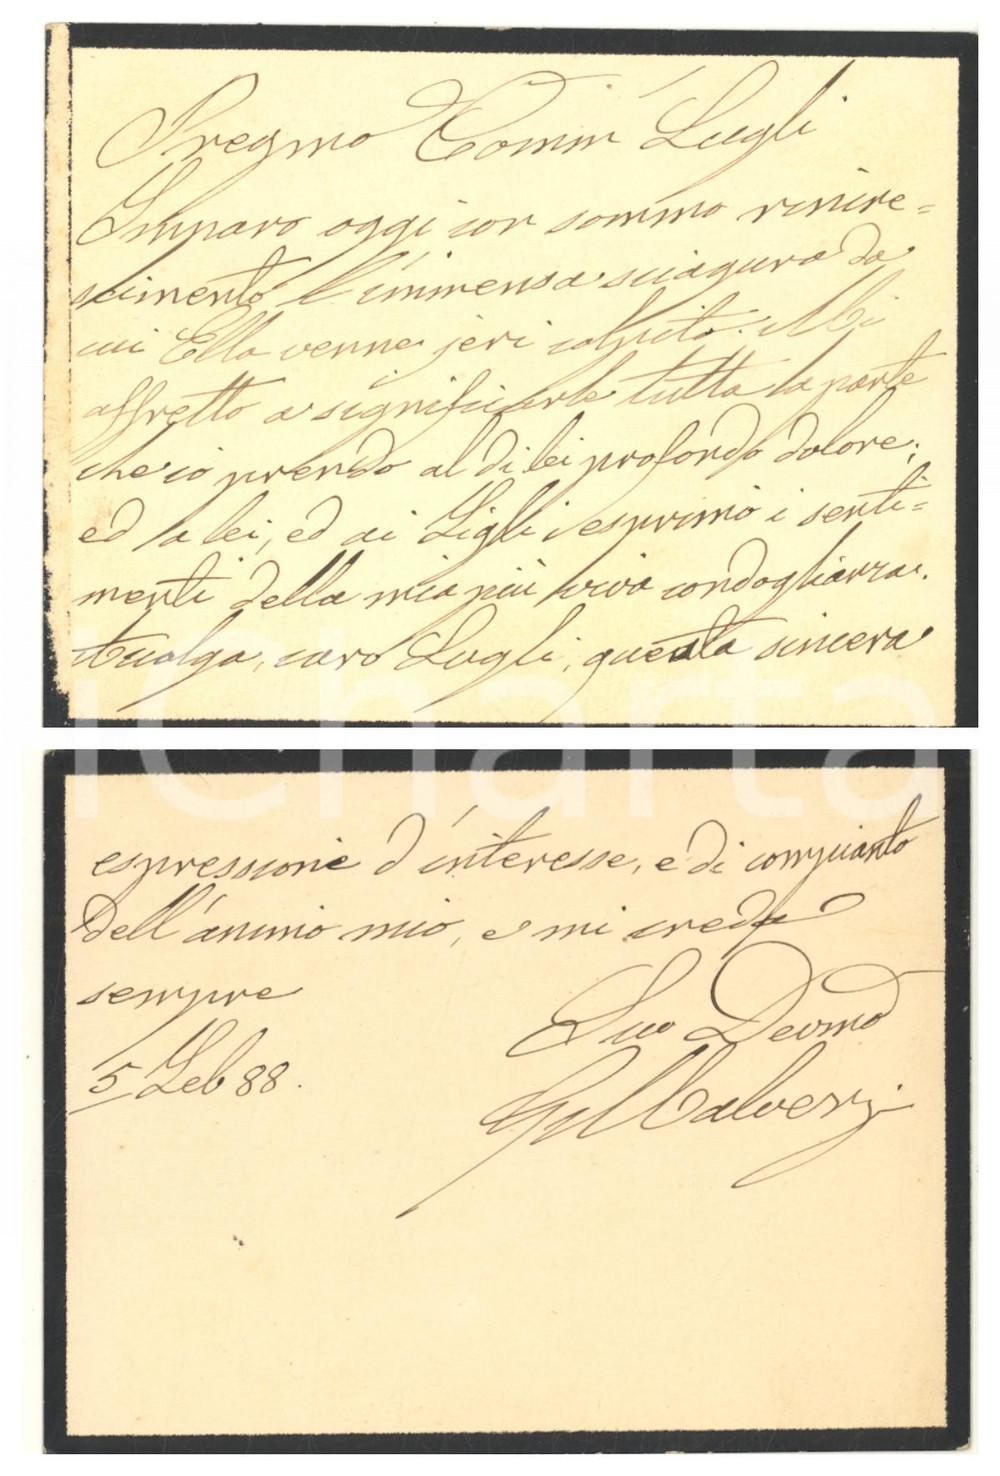 Pregmo Comm Lugli
Imparo oggi con sommo rincre=
scimento l'immensa sciagura da
cui Ella venne jeri colpito. Mi
affretto a significarle tutta la parte
che io prendo al di lei profondo dolore;
ed a lei, ed ai Figli esprimo i senti=
menti della mia più viva condoglianza.
Accolga, caro Lugli, questa sincera
iCharta
espressione d'interesse, e di compianto
dell'animo mio, e mi creda
sempre
Suo Devmo
5 Feb 88.
Malvezzi